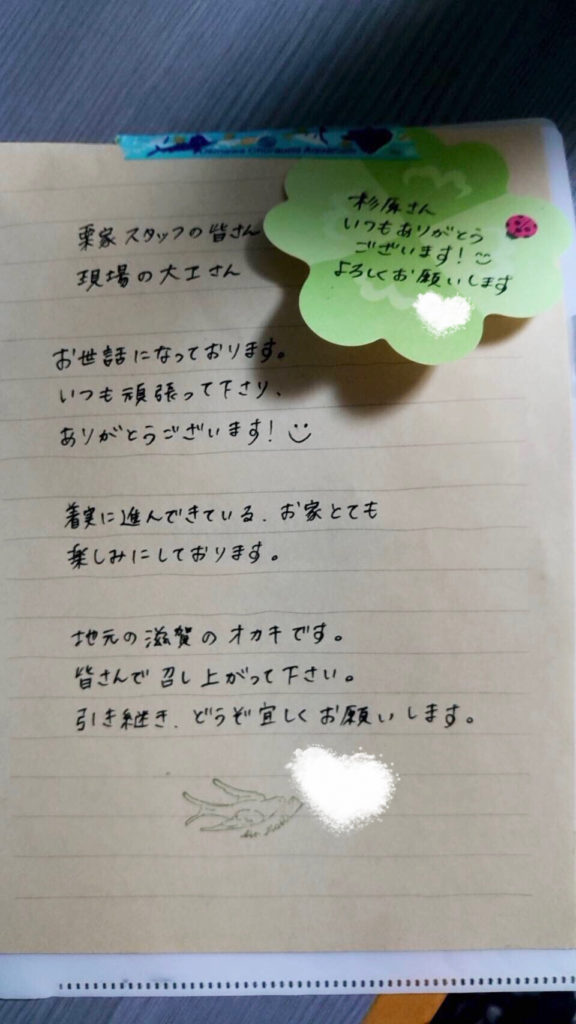 栗家スタッフの皆さん
現場の大工さん
お世話になっております。
いつも頑張って下さり、
ありがとうございます!
着実に進んできている、お家とても
楽しみにしております。
地元の滋賀のオカキです。
皆さんで召し上がって下さい。
引き継き、どうぞ宜しくお願いします。
杉原さん
いつもありがとう
ございます!
よろしくお願いします
Okinawa Churaumi Aquarium